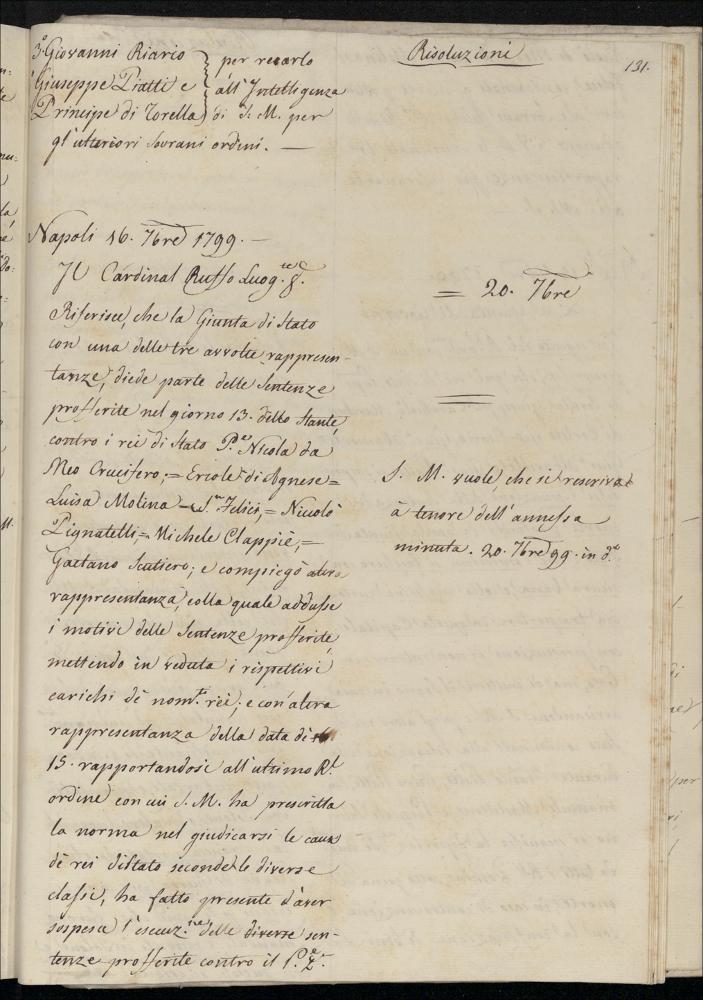 Risoluzioni
131.
3.° Giovanni Riario } per recarlo
Giuseppe Piatti e } all'Intelligenza
Principe di Torella } di S. M. per
gl'ulteriori Sovrani ordini. —
Napoli 16. 7bre 1799. —
Il Cardinal Ruffo Luog.te
Riferisce, che la Giunta di Stato
con una delle tre avvolte rappresen-
tanze, diede parte delle Sentenze
profferite nel giorno 13. dello Stante,
contro i rei di Stato P.re Nicola da
Meo Crucifero, = Ercole di Agnese =
Luisa Molina S. Felici, = Nicolò
Pignatelli, = Michele Clappiè, =
Gaetano Scutiero; e compiegò altra
rappresentanza, colla quale addusse
i motivi delle Sentenze profferite,
mettendo in veduta i rispettivi
carichi dè nom.ti rei, e con'altra
rappresentanza della data dè
15. rapportandosi all'ultimo R.l
ordine con cui S. M. ha prescritta
la norma nel giudicarsi le cause
dè rei di Stato secondo le diverse
classi, ha fatto presente d'aver
sospesa l'esecuz.ne delle diverse sen-
tenze profferite contro il P.e
= 20. 7bre
S. M. vuole, che si rescriva
à tenore dell'annessa
minuta. 20. 7bre 99. in d.°